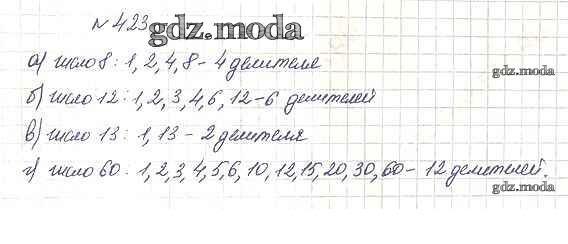 № 423 gdz.moda
а) число 8 : 1, 2, 4, 8 - 4 делителя
gdz.moda
б) число 12 : 1, 2, 3, 4, 6, 12 - 6 делителей
в) число 13 : 1, 13 - 2 делителя
г) число 60 : 1, 2, 3, 4, 5, 6, 10, 12, 15, 20, 30, 60 - 12 делителей.
gdz.moda